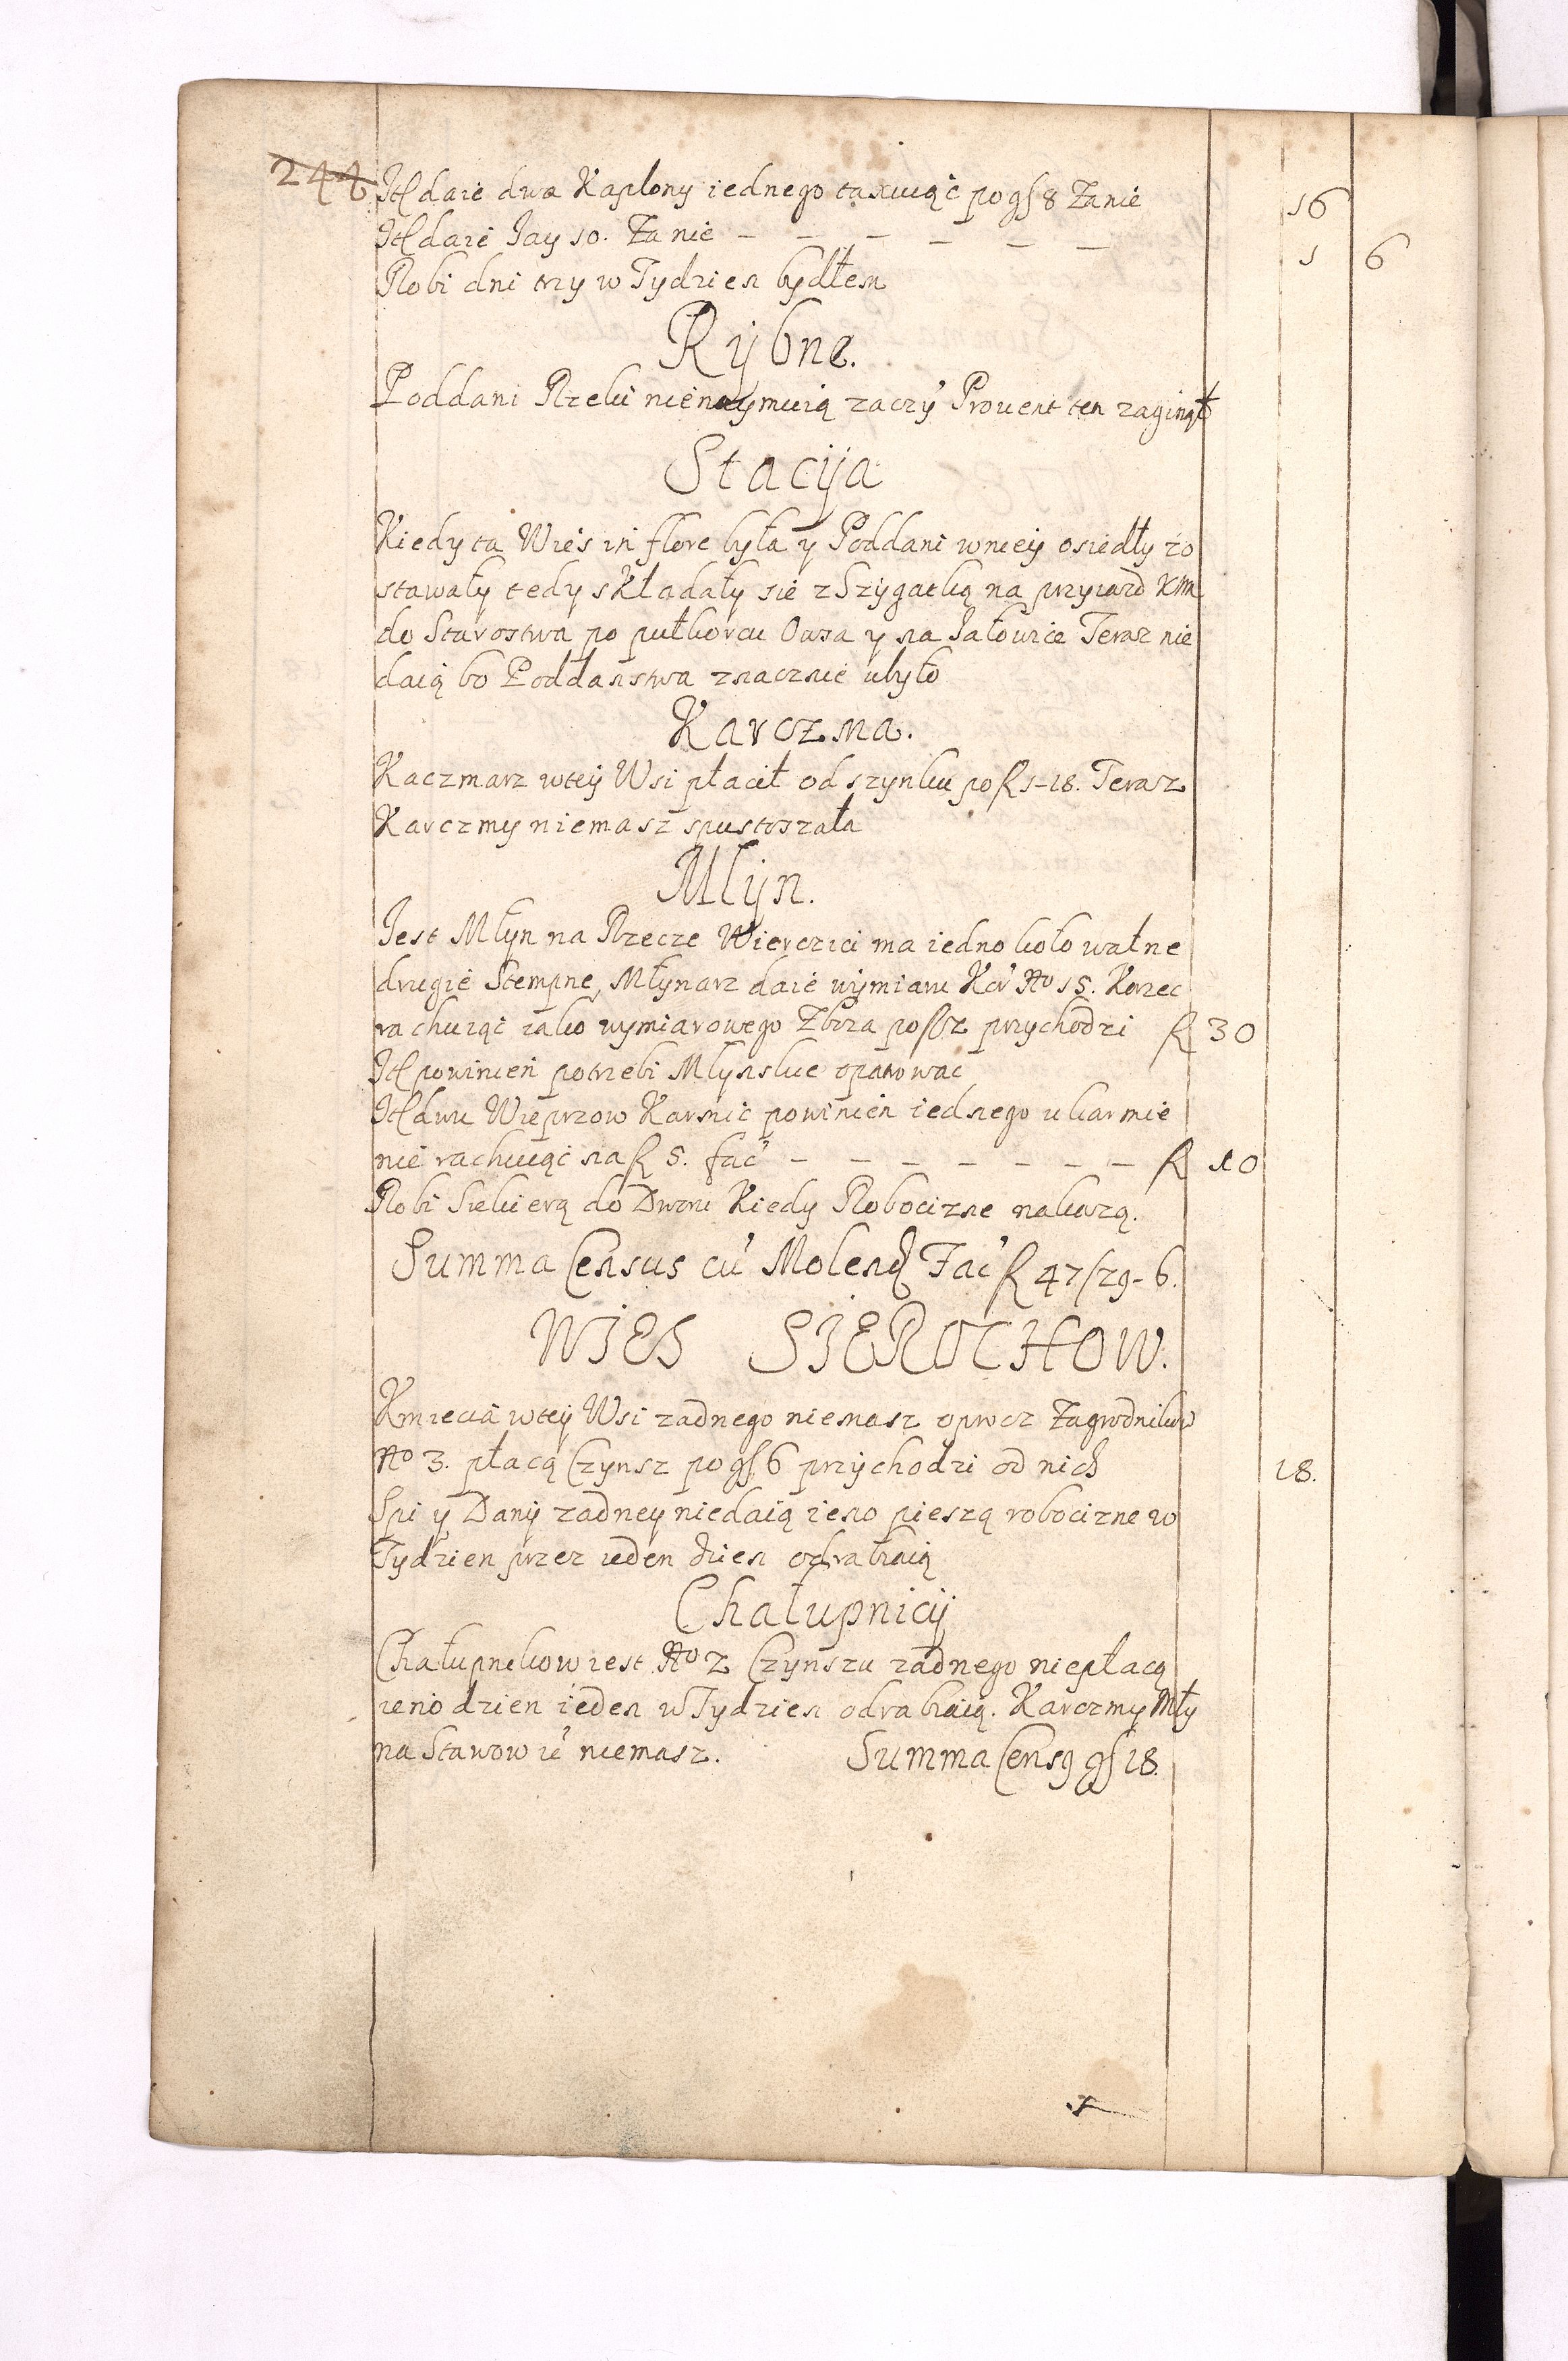 244
Itẽ daie dwa Kapłony iednego taxuiąc po gſ 8 Za nie 16
Itẽ daie Jay 10. Za nie – – – – – – 1 6
Robi dni trzy w Tydzien bydłem
Rybne.
Poddani Rzeki nienaymuią zaczÿ Prouent ten zaginął
Stacija
Kiedy ta Wieś in flore była y Poddani w nieij osiedły zo
stawały tedy składały sie z Szÿgatką na przyiazd
do Starostwa po pułkorcu Owsa y na Jałowice Teraz nie
daią bo Poddaństwa znacznie ubyło
Karczma.
Kaczmarz wteÿ Wsi płacił od szynku po ƒ 1-18. Teraz
Karczmy niemasz spustoszała
Mlÿn.
Jest Młyn na Rzecze Wierczici ma iedno koło walne
drugie Stempne, Młynarz daie wÿmiaru Kor No 15. Korzec
rachuiąc iako wymiarowego Zboza po ƒ 2 przychodzi ƒ 30
Itẽ powinien potrzebi Mlynskie opatrowac
Itẽ dwu Wieprzow Karmic powinien iednego ukarmie
nie rachuiąc na ƒ 5. fac' – – – – – – – ƒ 10
Robi Siekierą do Dworu Kiedy Robocizne nakazą.
Summa Census cu' Molend Fac' ƒ 47/29-6.
WJES SJEROCHOW.
Kmiecia wteÿ Wsi zadnego niemasz oprocz Zagrodnikow
No 3. płacą Czynsz po gſ 6 przÿchodzi od nich 18.
Spi y Danÿ zadney niedaią ieno pieszą robocizne w
Tydzien przez ieden dzien odrabiaią
Chałupnicÿ
Chałupnikow iest No 2 Czynszu zadnego niepłacą
ieno dzien ieden w Tydzien odrabiaią. Karczmy Mły
na Stawow ie' niemasz. Summa Censq gſ 18.